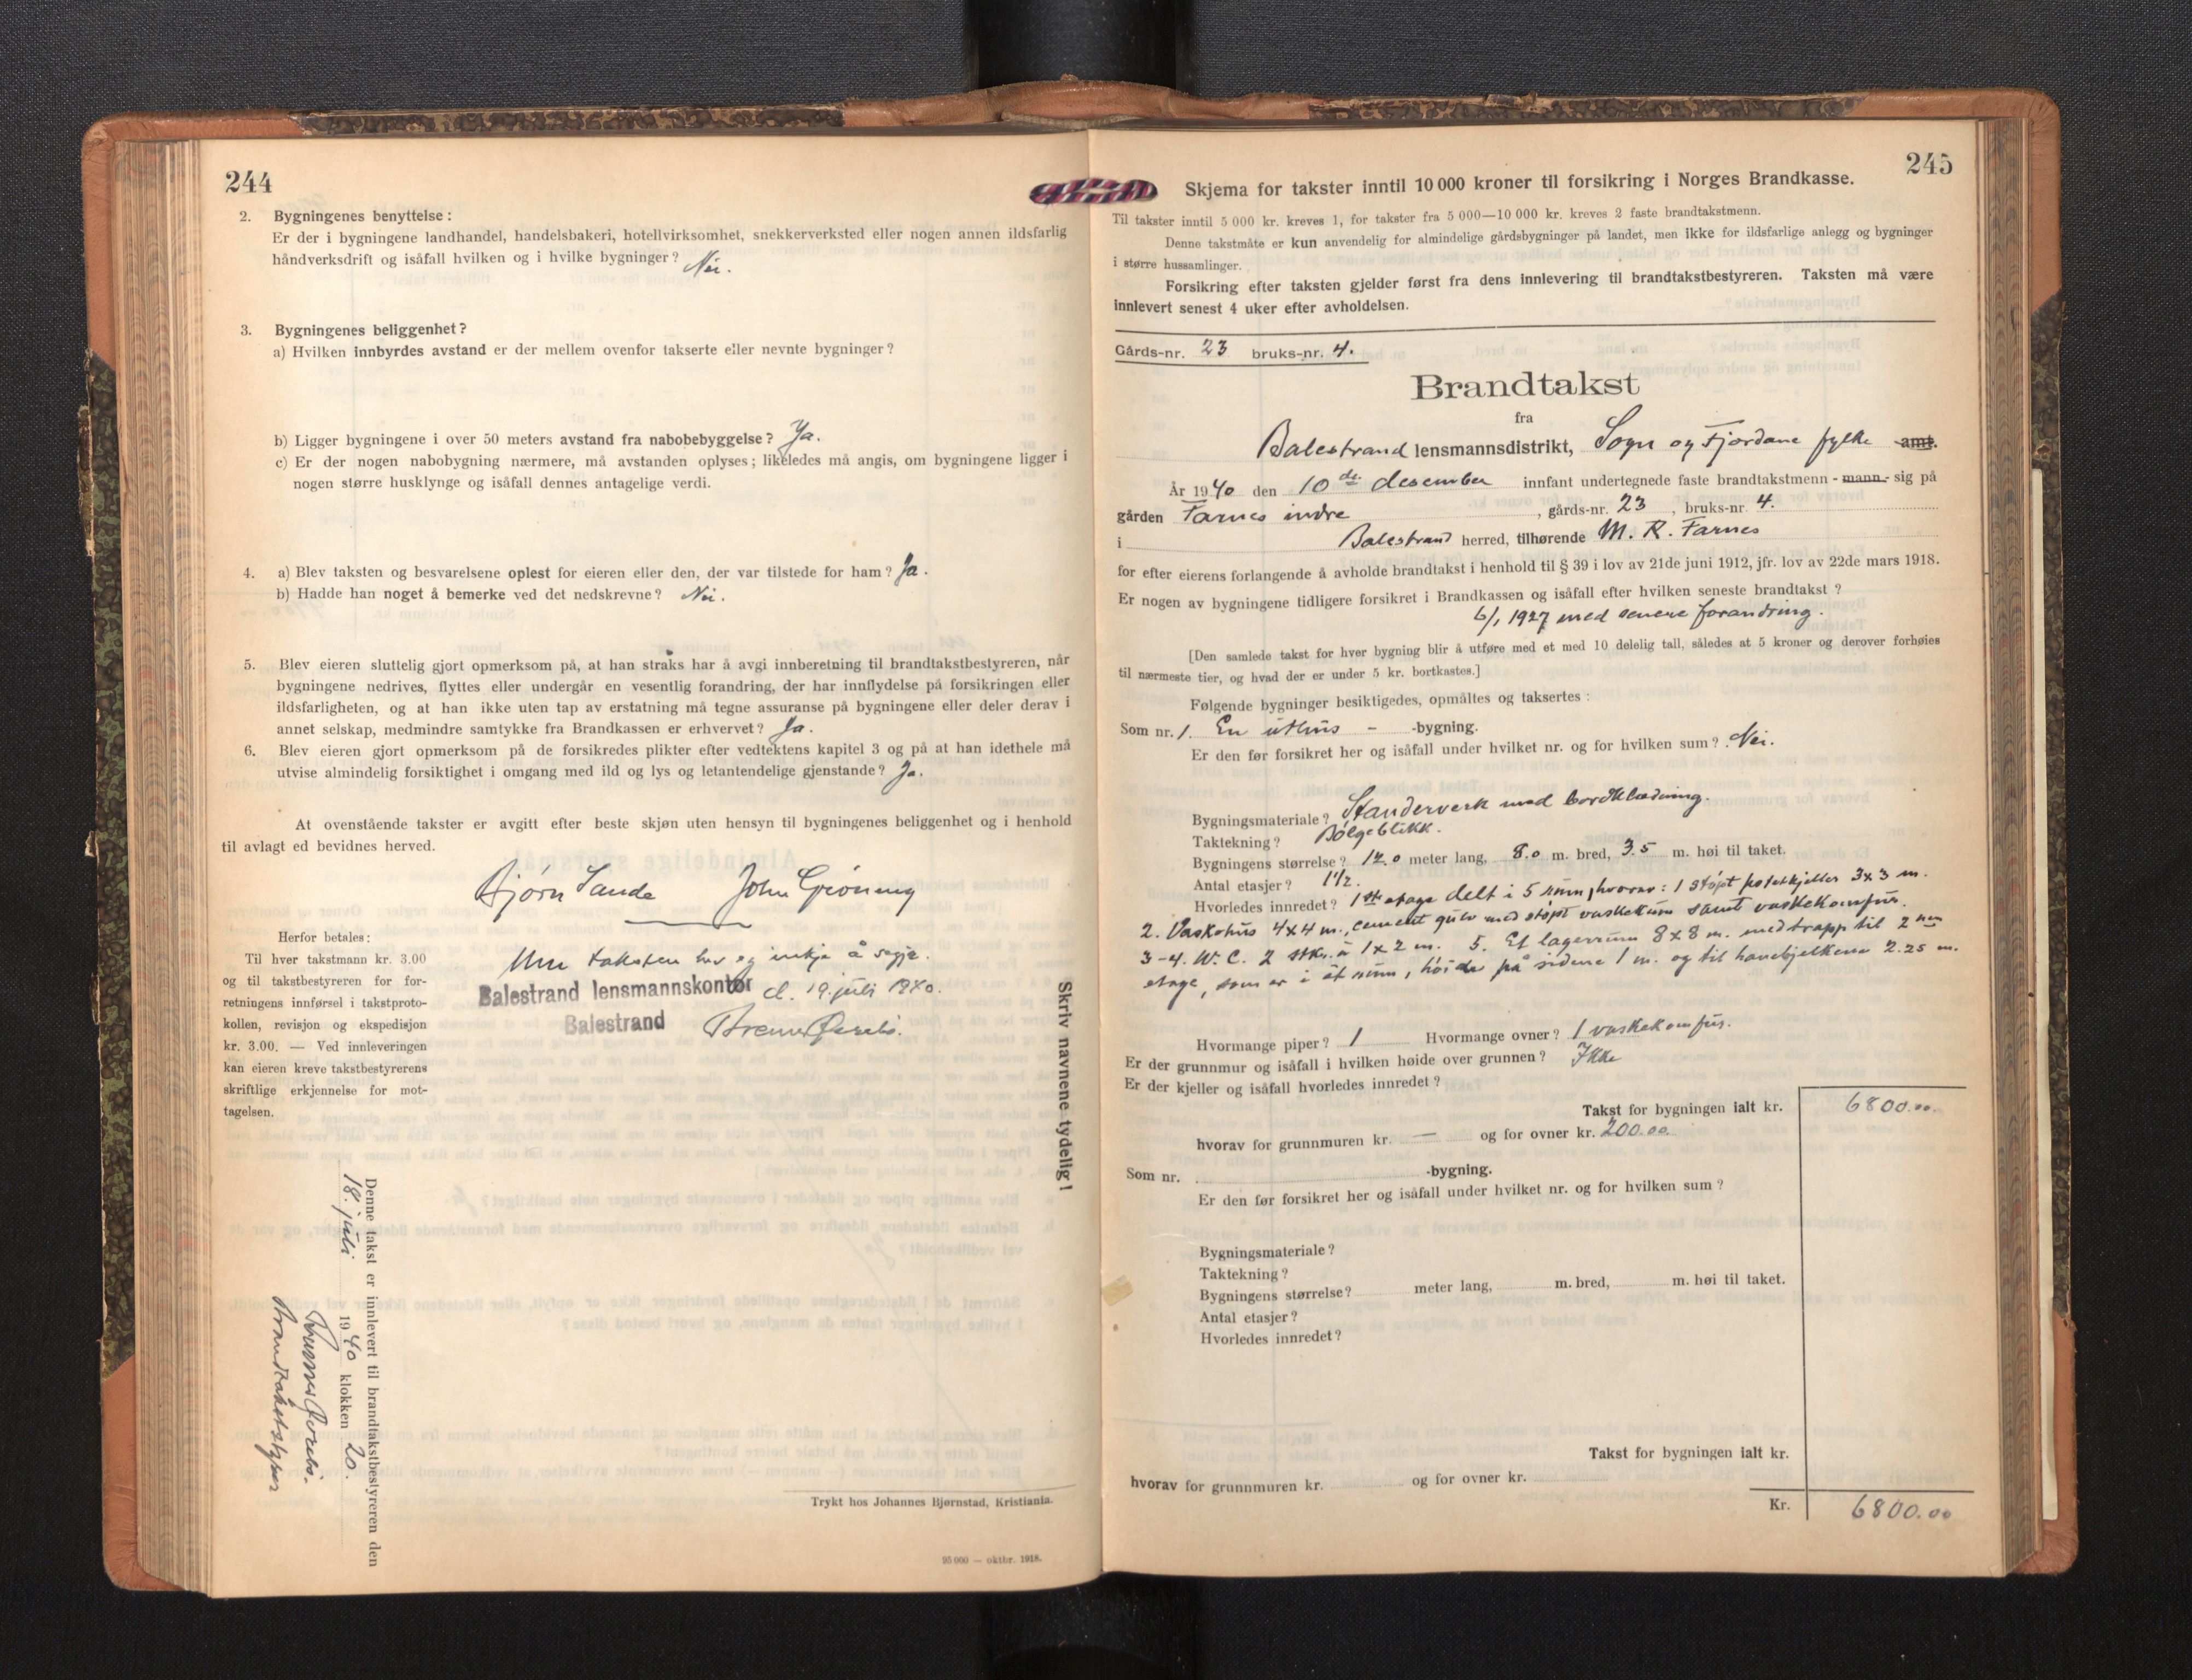 244
2. Bygningenes benyttelse:
Er der i bygningene landhandel, handelsbakeri, hotellvirksomhet, snekkerverksted eller nogen annen ildsfarlig
håndverksdrift og isåfall hvilken og i hvilke bygninger? Nei.
3. Bygningenes beliggenhet?
a) Hvilken innbyrdes avstand er der mellem ovenfor takserte eller nevnte bygninger?
b) Ligger bygningene i over 50 meters avstand fra nabobebyggelse? Ja.
c) Er der nogen nabobygning nærmere, må avstanden oplyses; likeledes må angis, om bygningene ligger i
nogen større husklynge og isåfall dennes antagelige verdi.
4. a) Blev taksten og besvarelsene oplest for eieren eller den, der var tilstede for ham? Ja.
b) Hadde han noget å bemerke ved det nedskrevne? Nei.
5. Blev eieren sluttelig gjort opmerksom på, at han straks har å avgi innberetning til brandtakstbestyreren, når
bygningene nedrives, flyttes eller undergår en vesentlig forandring, der har innflydelse på forsikringen eller
ildsfarligheten, og at han ikke uten tap av erstatning må tegne assuranse på bygningene eller deler derav i
annet selskap, medmindre samtykke fra Brandkassen er erhvervet? Ja.
6. Blev eieren gjort opmerksom på de forsikredes plikter efter vedtektens kapitel 3 og på at han idethele må
utvise almindelig forsiktighet i omgang med ild og lys og letantendelige gjenstande? Ja.
At ovenstående takster er avgitt efter beste skjøn uten hensyn til bygningenes beliggenhet og i henhold
til avlagt ed bevidnes herved.
Bjørn Sande John Grøneng
Um taksten hev eg inkje å segja.
Balestrand lensmannskontor d. 19. juli 1940.
Balestrand
Herfor betales:
Til hver takstmann kr. 3.00
og til takstbestyreren for for-
retningens innførsel i takstproto-
kollen, revisjon og ekspedisjon
kr. 3.00. — Ved innleveringen
kan eieren kreve takstbestyrerens
skriftlige erkjennelse for mot-
tagelsen.
Skriv navnene tydelig!
Denne takst er innlevert til brandtakstbestyreren den
18. juli 1940 klokken 20.
Brandtakstbestyrer
Trykt hos Johannes Bjørnstad, Kristiania.
95 000 — oktbr. 1918.
245
Skjema for takster inntil 10 000 kroner til forsikring i Norges Brandkasse.
Til takster inntil 5 000 kr. kreves 1, for takster fra 5 000—10 000 kr. kreves 2 faste brandtakstmenn.
Denne takstmåte er kun anvendelig for almindelige gårdsbygninger på landet, men ikke for ildsfarlige anlegg og bygninger
i større hussamlinger.
Forsikring efter taksten gjelder først fra dens innlevering til brandtakstbestyreren. Taksten må være
innlevert senest 4 uker efter avholdelsen.
Gårds-nr. 23 bruks-nr. 4.
Brandtakst
fra
Balestrand lensmannsdistrikt, Sogn og Fjordane fylke amt.
År 1940 den 10de desember innfant undertegnede faste brandtakstmenn - mann - sig på
gården Farnes indre, gårds-nr. 23, bruks-nr. 4.
i Balestrand herred, tilhørende M. R. Farnes
for efter eierens forlangende å avholde brandtakst i henhold til § 39 i lov av 21de juni 1912, jfr. lov av 22de mars 1918.
Er nogen av bygningene tidligere forsikret i Brandkassen og isåfall efter hvilken seneste brandtakst?
6/1 1927 med senere forandring.
[Den samlede takst for hver bygning blir å utføre med et med 10 delelig tall, således at 5 kroner og derover forhøies
til nærmeste tier, og hvad der er under 5 kr. bortkastes.]
Følgende bygninger besiktigedes, opmåltes og taksertes:
Som nr. 1. En uthus - -bygning.
Er den før forsikret her og isåfall under hvilket nr. og for hvilken sum? Nei.
Bygningsmateriale? Standerverk med bordklædning.
Taktekning? Bølgeblikk.
Bygningens størrelse? 12.0 meter lang, 8.0 m. bred, 3.5 m. høi til taket.
Antal etasjer? 1 1/2.
Hvorledes innredet? 1ste etage delt i 5 rum, hvorav: 1 støpt potetkjeller 3x3 m.
2. Vaskehus 4x4 m., cement gulv med støpt vaskekum samt vaskekomfur.
3-4. W. C. 2 stkr. à 1x2 m. 5. Et lagerrum 8x8 m. med trapp til 2nen
etage, som er i ét rum, høide på sidene 1 m. og til hanebjelkene 2.25 m.
Hvormange piper? 1 Hvormange ovner? 1 vaskekomfur.
Er der grunnmur og isåfall i hvilken høide over grunnen? Ikke
Er der kjeller og isåfall hvorledes innredet?
Takst for bygningen ialt kr. 6800.00
hvorav for grunnmuren kr. — og for ovner kr. 200.00
Som nr. -bygning.
Er den før forsikret her og isåfall under hvilket nr. og for hvilken sum?
Bygningsmateriale?
Taktekning?
Bygningens størrelse? meter lang, m. bred, m. høi til taket.
Antal etasjer?
Hvorledes innredet?
Takst for bygningen ialt kr.
hvorav for grunnmuren kr. og for ovner kr.
Kr. 6800.00